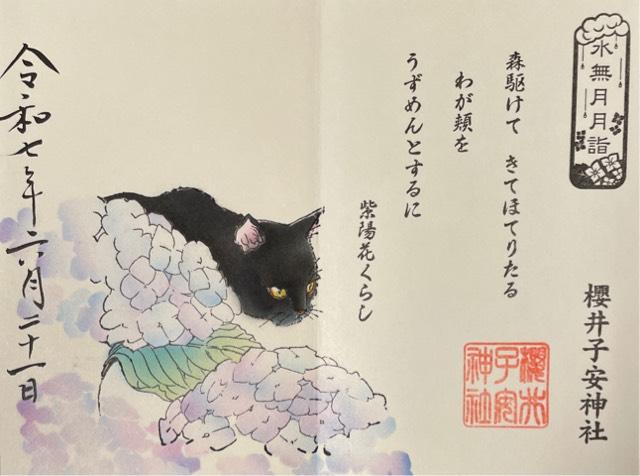 水無月月詣
森駆けて きてほてりたる
わが頬を
うずめんとするに
紫陽花くらし
櫻井子安神社
櫻井
子安
神社
令和七年六月二十一日